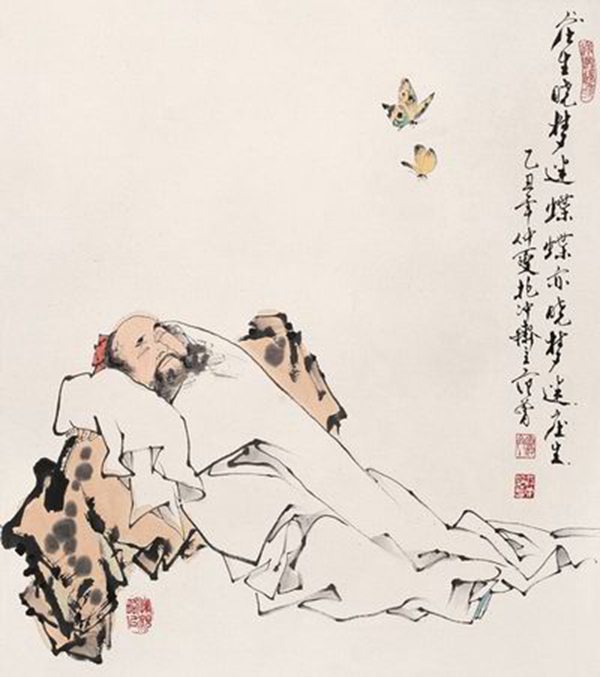 庄生晓梦迷蝶蝶亦晓梦迷庄生
乙丑年仲夏抱冲斋主范曾